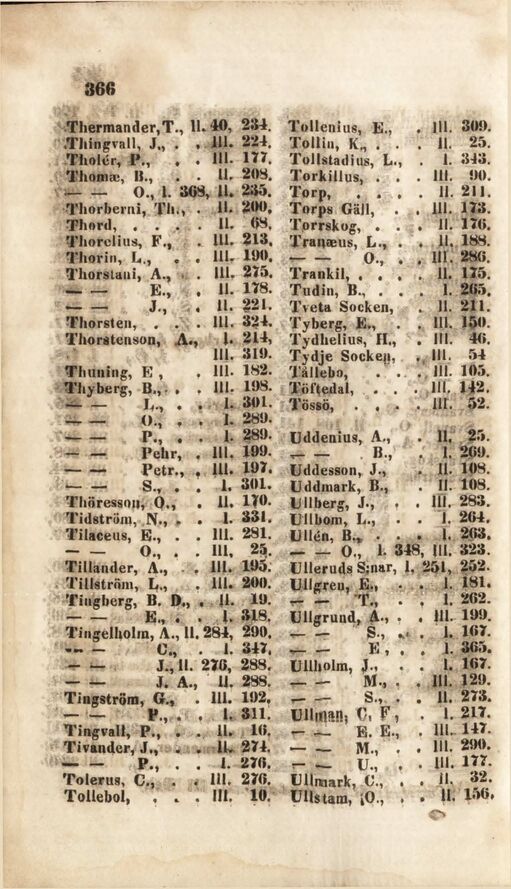 366
Thermander, T., II. 40, 234.
Thingvall, J., . . III. 224.
Tholér, P., . III. 177.
Thomæ, B., . . II. 208.
— — O., I. 368, II. 235.
Thorberni, Th., . II. 200.
Thord, . . . II. 68.
Thorelius, F., . III. 213.
Thorin, L., . . III. 190.
Thorstani, A., . III. 275.
— — E., . II. 178.
— — J., . II. 221.
Thorsten, . . . III. 324.
Thorstenson, A., I. 214,
III. 319.
Thuning, E , . III. 182.
Thyberg, B., . . III. 198.
— — L., . . I. 301.
— — O., . . I. 289.
— — P., . . I. 289.
— — Pehr, . III. 199.
— — Petr., . III. 197.
— — S., . . I. 301.
Thöresson, O., . II. 170.
Tidström, N., . . I. 331.
Tilaceus, E., . . III. 281.
— — O., . . III, 25.
Tillander, A., . III. 195.
Tillström, L., . III. 200.
Tingberg, B. D., . II. 19.
— — E., . . I. 318.
Tingelholm, A., II. 284, 290.
— — C., . I. 347.
— — J., II. 276, 288.
— — J. A., II. 288.
Tingström, G., . III. 192.
— — P., . . I. 311.
Tingvall, P., . . II. 16.
Tivander, J., . . II. 274.
— — P., . . I. 276.
Tolerus, C., . . III. 276.
Tollebol, . . . III. 10.
Tollenius, E., . III. 309.
Tollin, K., . . II. 25.
Tollstadius, L., . I. 343.
Torkillus, . . . III. 90.
Torp, . . . . II. 211.
Torps Gäll, . . III. 173.
Torrskog, . . . II. 176.
Tranæus, L., . . II. 188.
— — O., . . III. 286.
Trankil, . . . . II. 175.
Tudin, B., . . . I. 265.
Tveta Socken, . II. 211.
Tyberg, E., . . III. 150.
Tydhelius, H., . III. 46.
Tydje Socken, . III. 54
Tållebo, . . . III. 105.
Töftedal, . . . III. 142.
Tössö, . . . . III. 52.
Uddenius, A., . II. 25.
— — B., . I. 269.
Uddesson, J., . II. 108.
Uddmark, B., . II. 108.
Ullberg, J., . . III. 283.
Ullbom, L., . . I. 264.
Ullén, B., . . . I. 263.
— — O., I. 348, III. 323.
Ulleruds S:nar, I. 251, 252.
Ullgren, E., . . I. 181.
— — T., . . I. 262.
Ullgrund, A., . . III. 199.
— — S., . . I. 167.
— — E , . . I. 365.
Ullholm, J., . . I. 167.
— — M., . . III. 129.
— — S., . . II. 273.
Ullman, C. F , . I. 217.
— — E. E., . III. 147.
— — M., . . III. 290.
— — U., . . III. 177.
Ullmark, C., . . II. 32.
Ullstam, O., . . II. 156.